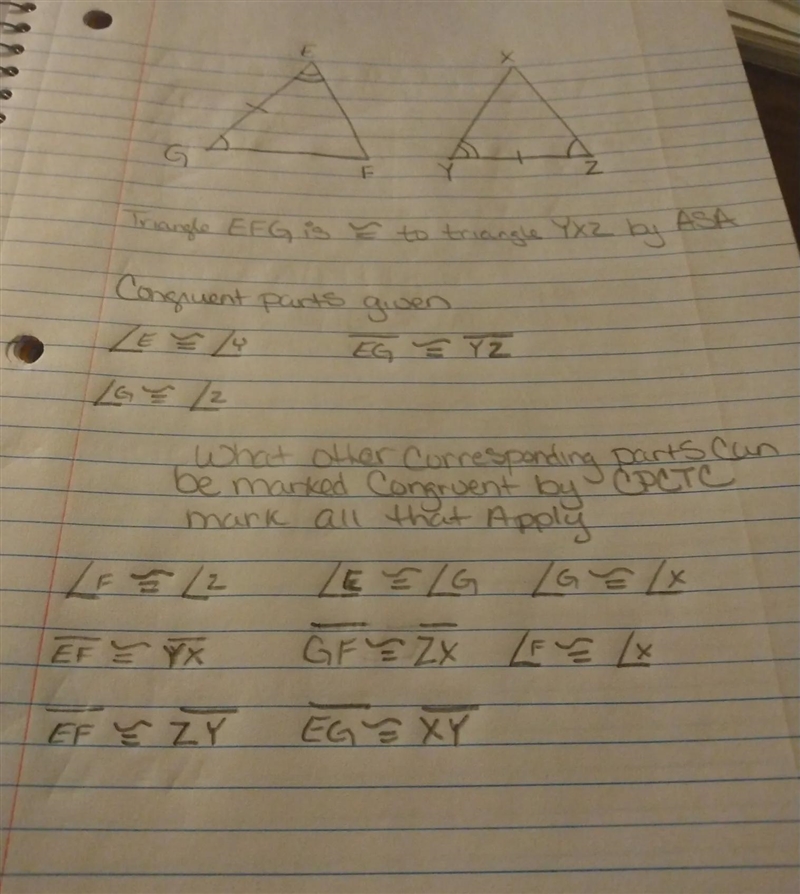 E X
G F Y Z
Triangle EFG is ≅ to triangle YXZ by ASA
Congruent parts given
∠E ≅ ∠Y EG ≅ YZ
∠G ≅ ∠Z
What other corresponding parts can
be marked Congruent by CPCTC
mark all that Apply
∠F ≅ ∠Z ∠E ≅ ∠G ∠G ≅ ∠X
EF ≅ YX GF ≅ ZX ∠F ≅ ∠X
EF ≅ ZY EG ≅ XY